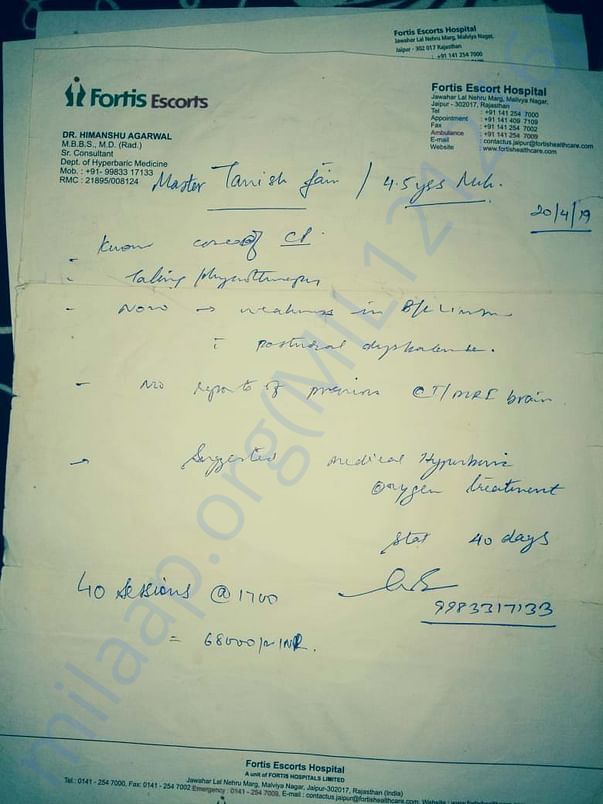 Fortis Escorts Hospital
Jawahar Lal Nehru Marg, Malviya Nagar,
Jaipur - 302 017 Rajasthan
: +91 141 254 7000
Fortis Escorts
Fortis Escort Hospital
Jawahar Lal Nehru Marg, Malivya Nagar,
Jaipur - 302017, Rajasthan
Tel : +91 141 254 7000
Appointment : +91 141 409 7109
Fax : +91 141 254 7002
Ambulance : +91 141 254 7009
E-mail : contactus.jaipur@fortishealthcare.com
Website : www.fortishealthcare.com
DR. HIMANSHU AGARWAL
M.B.B.S., M.D. (Rad.)
Sr. Consultant
Dept. of Hyperbaric Medicine
Mob. : +91- 99833 17133
RMC : 21895/008124
Master Tanish Jain / 4.5 yrs
20/4/19
- Known case of CP.
- Taking physiotherapy
- Now → weakness in B/L
postural
- No reports of previous CT/MRI brain
→ Suggested medical Hyperbaric
Oxygen treatment
stat 40 days
40 Sessions @ 1700
9983317133
= 68000/- INR.
milaap.org(MIL
Fortis Escorts Hospital
A unit of FORTIS HOSPITALS LIMITED
Jawahar Lal Nehru Marg, Malviya Nagar, Jaipur-302017, Rajasthan (India)
Tel.: 0141 - 254 7000, Fax: 0141 - 254 7002 Emergency : 0141 - 254 7009, E-mail : contactus.jaipur@fortishealthcare.com,